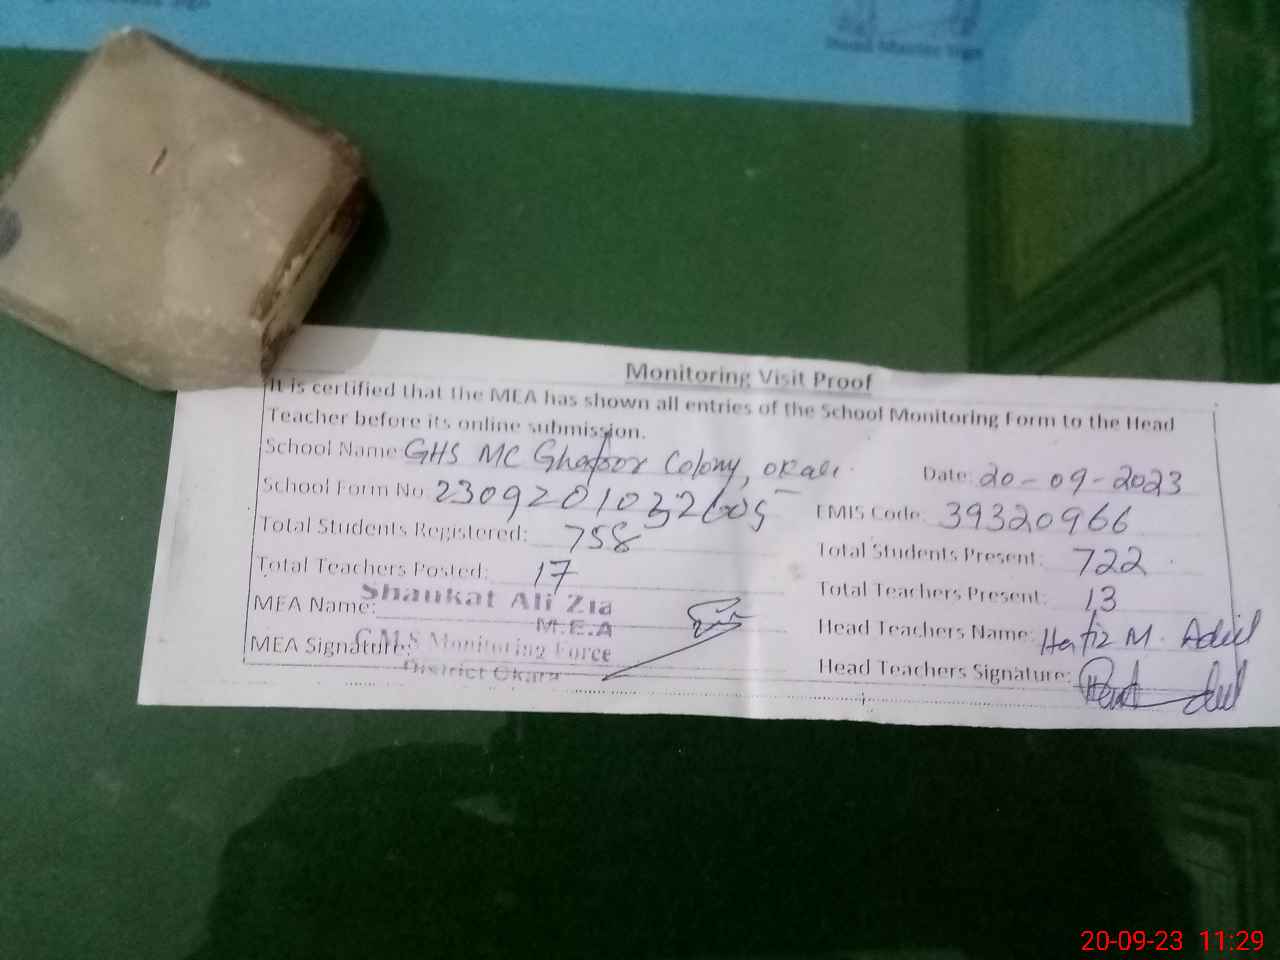 Head Master Sign
Monitoring Visit Proof
It is certified that the MEA has shown all entries of the School Monitoring Form to the Head
Teacher before its online submission.
School Name GHS MC Ghafoor Colony, Okara
Date: 20-09-2023
School Form No.
EMIS Code: 39320966
Total Students Registered: 758
Total Students Present: 722
Total Teachers Posted: 17
Total Teachers Present: 13
MEA Name: Shaukat Ali Zia
M.E.A
Head Teachers Name: Hafiz M. Adeel
MEA Signature: C.M.S Monitoring Force
District Okara
Head Teachers Signature:
20-09-23 11:29